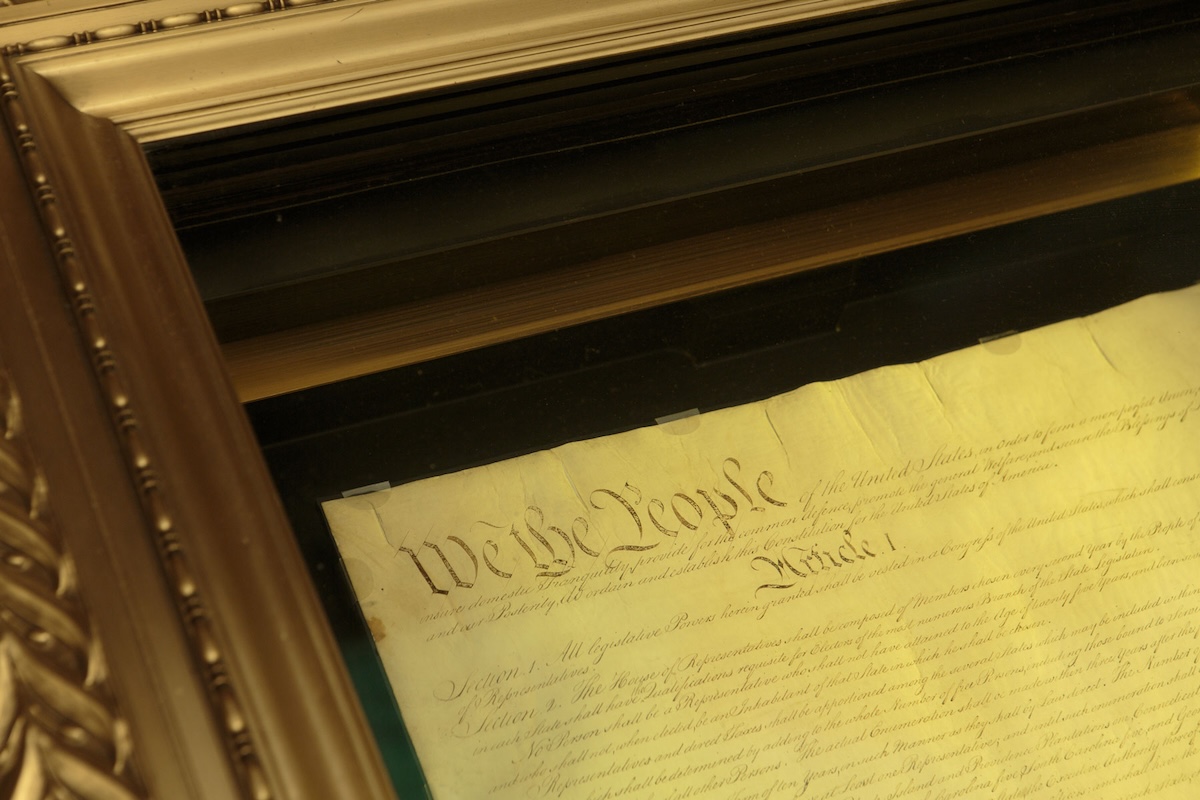 We the People of the United States, in Order to form a more perfect Union,
insure domestic Tranquility, provide for the common defence, promote the general Welfare, and secure the Blessings of
and our Posterity, do ordain and establish this Constitution for the United States of America.
Article I.
Section. 1. All legislative Powers herein granted shall be vested in a Congress of the United States, which shall
of Representatives.
Section. 2. The House of Representatives shall be composed of Members chosen every second Year by the People of
in each State shall have the Qualifications requisite for Electors of the most numerous Branch of the State Legislature.
No Person shall be a Representative who shall not have attained to the Age of twenty five Years, and been
and who shall not, when elected, be an Inhabitant of that State in which he shall be chosen.
Representatives and direct Taxes shall be apportioned among the several States which may be included within
which shall be determined by adding to the whole Number of free Persons, including those bound to
of all other Persons. The actual Enumeration shall be made within three Years after the
Term of ten Years, in such Manner as they shall by Law direct. The Number of
at Least one Representative; and until such enumeration shall
Island and Providence Plantations one, Connecticut
Carolina five, South Carolina five, and
Executive Authority